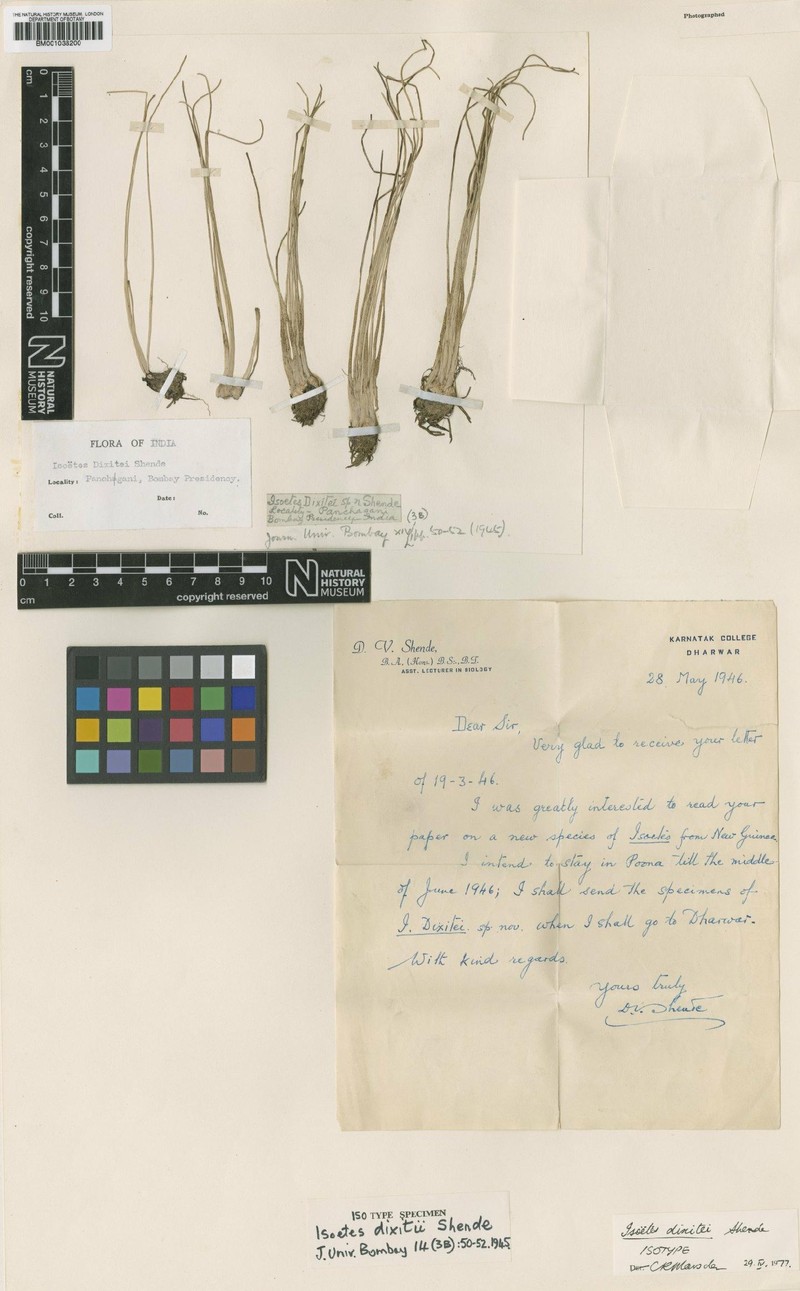 THE NATURAL HISTORY MUSEUM, LONDON
DEPARTMENT OF BOTANY
BM001038200
Photographed
cm 0 1 2 3 4 5 6 7 8 9 10
copyright reserved
NATURAL
HISTORY
MUSEUM
FLORA OF INDIA
Isoëtes Dixitei Shende
Locality: Panchgani, Bombay Presidency.
Date:
Coll. No.
Isoetes Dixitei sp. n Shende
Locality - Panchagani
Bombay Presidency India
(3B)
Journ. Univ. Bombay xiv pp. 50-52 (1945).
0 1 2 3 4 5 6 7 8 9 10
cm
copyright reserved
NATURAL
HISTORY
MUSEUM
D. V. Shende,
B.A. (Hons.) B.Sc., B.T.
ASST. LECTURER IN BIOLOGY
KARNATAK COLLEGE
DHARWAR
28 May 1946.
Dear Sir,
Very glad to receive your letter
of 19-3-46.
I was greatly interested to read your
paper on a new species of Isoetes from New Guinea.
I intend to stay in Poona till the middle
of June 1946; I shall send the specimens of
I. Dixitei sp nov. when I shall go to Dharwar.
With kind regards.
Yours truly
D.V. Shende
ISO TYPE SPECIMEN
Isoetes dixitii Shende
J. Univ. Bombay 14 (3B): 50-52. 1945.
Isoëtes dixitei Shende
ISOTYPE
Det. C R Marsden 29. IV. 1977.